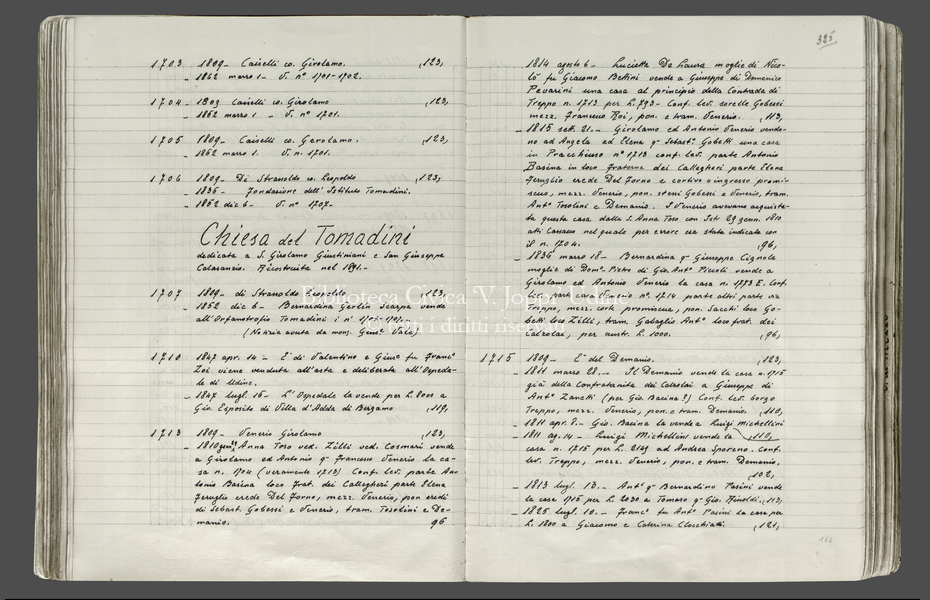 1703 1809 - Caiselli co. Girolamo. ,123,
- 1862 marzo 1 - V. n° 1701-1702.
1704 - 1809 Caiselli co. Girolamo ,123,
- 1862 marzo 1 - V. n° 1701.
1705 1809 - Caiselli co. Gerolamo. ,123,
- 1862 marzo 1. V. n. 1701.
1706 1809 - Di Strasoldo co. Leopoldo ,123,
- 1836 - Fondazione dell' Istituto Tomadini.
- 1852 dic 6 - V. n° 1707-
Chiesa del Tomadini
dedicata a S. Girolamo Giustiniani e San Giuseppe
Calasanzio. Ricostruita nel 1891.-
1707 1809 - di Strasoldo Leopoldo ,123,
- 1852 dic 6 - Bernardina Gerlin Scarpa vende
all'Orfanotrofio Tomadini i n' 1706-1707.
(Notizia avuta da mons. Gius. Vale)
1710 1847 apr. 14 - E' di Valentino e Gius. fu Franc°
Zoi viene venduta all'asta e deliberata all'Ospeda-
le di Udine.
- 1847 lugl. 16 - L'Ospedale la vende per L. 8000 a
Gio. Esposito di Villa d'Adda di Bergamo ,119,
1713 1809 - Venerio Girolamo ,123,
- 1810 genn. Anna Toso ved. Zilli ved. Cosmari vende
a Girolamo ed Antonio q- Francesco Venerio la ca-
sa n. 1704 (veramente 1713) Conf. lev. parte An-
tonio Basina loco frat. dei Callegheri parte Elena
Feruglio erede Del Forno, mezz. Venerio, pon eredi
di Sebast. Gobessi e Venerio, tram. Tosolini e De-
manio. 96
325
1814 agosto 6 - Lucietta De Laura moglie di Nico-
lò fu Giacomo Bettini vende a Giuseppe di Domenico
Pevarini una casa al principio della Contrada di
Treppo n. 1713 per L. 793 - Conf. lev. sorelle Gobessi
mezz. Francesco Roi, pon. e tram. Venerio. ,113,
- 1815 ott. 21. - Girolamo ed Antonio Venerio vendo-
no ad Angela ed Elena q- Sebast. Gobetti una casa
in Pracchiuso n° 1713 conf. lev. parte Antonio
Basina in loco fraterna dei Callegheri parte Elena
Feruglio erede Del Forno e cortivo o ingresso promi-
scuo, mezz. Venerio, pon. stessi Gobessi e Venerio, tram.
Ant° Tosolini e Demanio. I Venerio avevano acquista-
ta questa casa dalla S. Anna Toso con Istr. 29 genn. 1810
atti Cassacco nel quale per errore era stata indicata con
il n. 1704. ,96,
- 1836 marzo 18 - Bernardina q- Giuseppe Cignola
moglie di Dom° Pietro di Gio. Ant° Piccoli vende a
Girolamo ed Antonio Venerio la casa n. 1773 E. conf.
lev. parte casa Venerio n°. 1714 parte altri parte via
Treppo, mezz. corte promiscua, pon. Sacchi loco Go-
betti loco Zilli, tram. Gabaglio Ant° loco frat. dei
Calzolai, per austr. L. 1000. ,96,
1715 1809 - E' del Demanio. ,123,
- 1811 marzo 28. - Il Demanio vende la casa n. 1715
già della Confraternita dei Calzolai a Giuseppe di
Ant° Zanetti (per Gio. Basina?) Conf. lev. borgo
Treppo, mezz. Venerio, pon. e tram. Demanio. ,110,
- 1811 apr. 8. - Gio. Basina la vende a Luigi Michellini
- 1811 ag. 14 - Luigi Michellini vende la ,110,
casa n. 1715 per L. 2149 ad Andrea Sporeno. Conf.
lev. Treppo, mezz. Venerio, pon. e tram. Demanio.
,102,
- 1813 lugl. 13. - Ant° q- Bernardino Pasini vende
la casa 1715 per L. 2030 a Tomaso q- Gio. Rinoldi. ,113,
- 1825 lugl. 10. - Franc° fu Ant° Pasini la casa per
L. 1800 a Giacomo e Caterina Clocchiatti. ,121,
Biblioteca Civica "V. Joppi" Udine
© tutti i diritti riservati